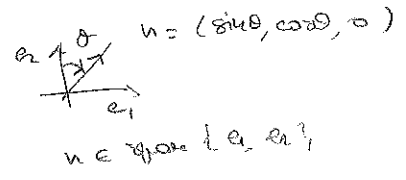 θ n = (sinθ, cosθ, 0)
e₂
e₁
n ∈ span { e₁, e₂ },